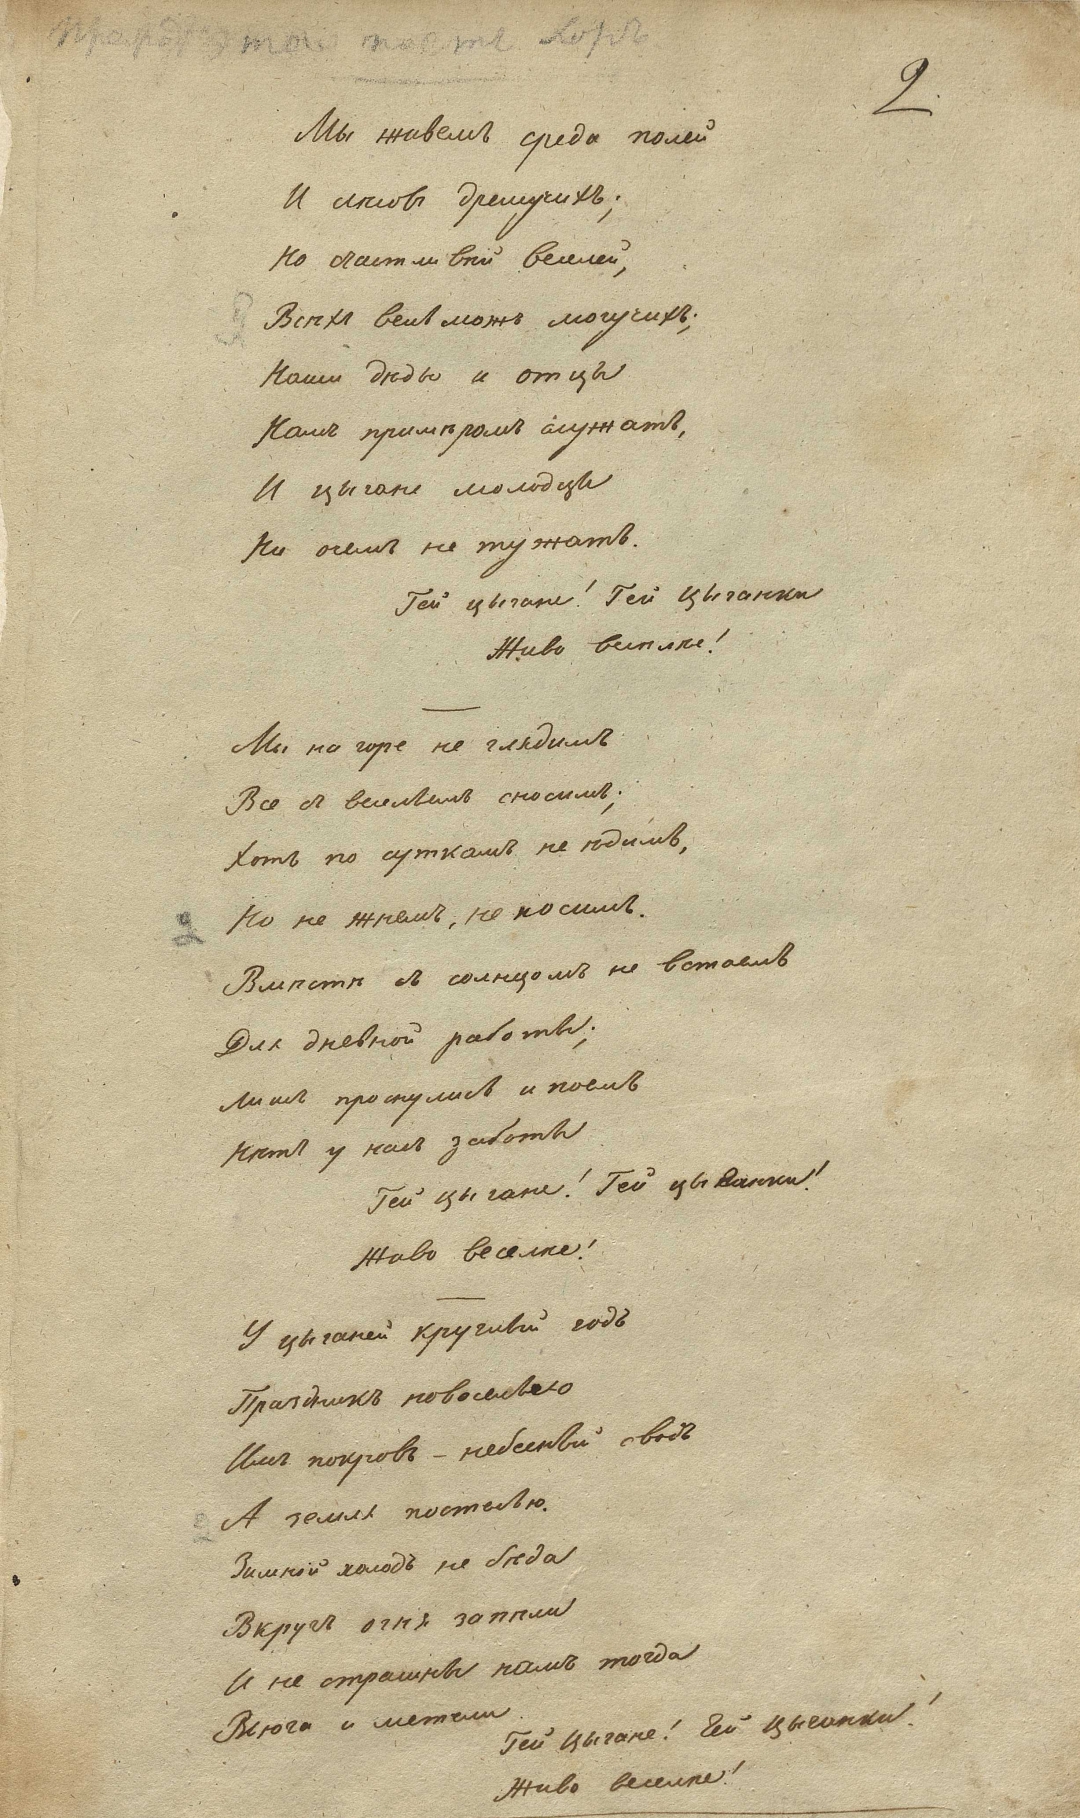 2.
Мы живемъ среда полей
И лѣсовъ дремучихъ;
Но счастливѣй веселей,
Всѣхъ вельможъ могучихъ;
Наши дѣды и отцы
Намъ примѣромъ служатъ,
И цыгане молодцы
Ни очемъ не тужатъ.
Гей цыгане! Гей цыганки
Живо веселѣе!
Мы на горе не глядимъ
Все съ весельемъ сносимъ;
Хоть по суткамъ не ѣдимъ,
2
Но не жнемъ, не косимъ.
Вмѣстѣ съ солнцомъ не встаемъ
Для дневной работы;
Лишь проснулись и поемъ
Нѣтъ у насъ заботы
Гей цыгане! Гей цыганки!
Живо веселѣе!
У цыганей круглый годъ
Праздникъ новоселью
Имъ покровъ – небесный сводъ
2
А земля постелью.
Зимной холодъ не бѣда
Вкругъ огня запѣли
И не страшны намъ тогда
Вьюга и метели
Гей цыгане! Гей цыганки!
Живо веселѣе!